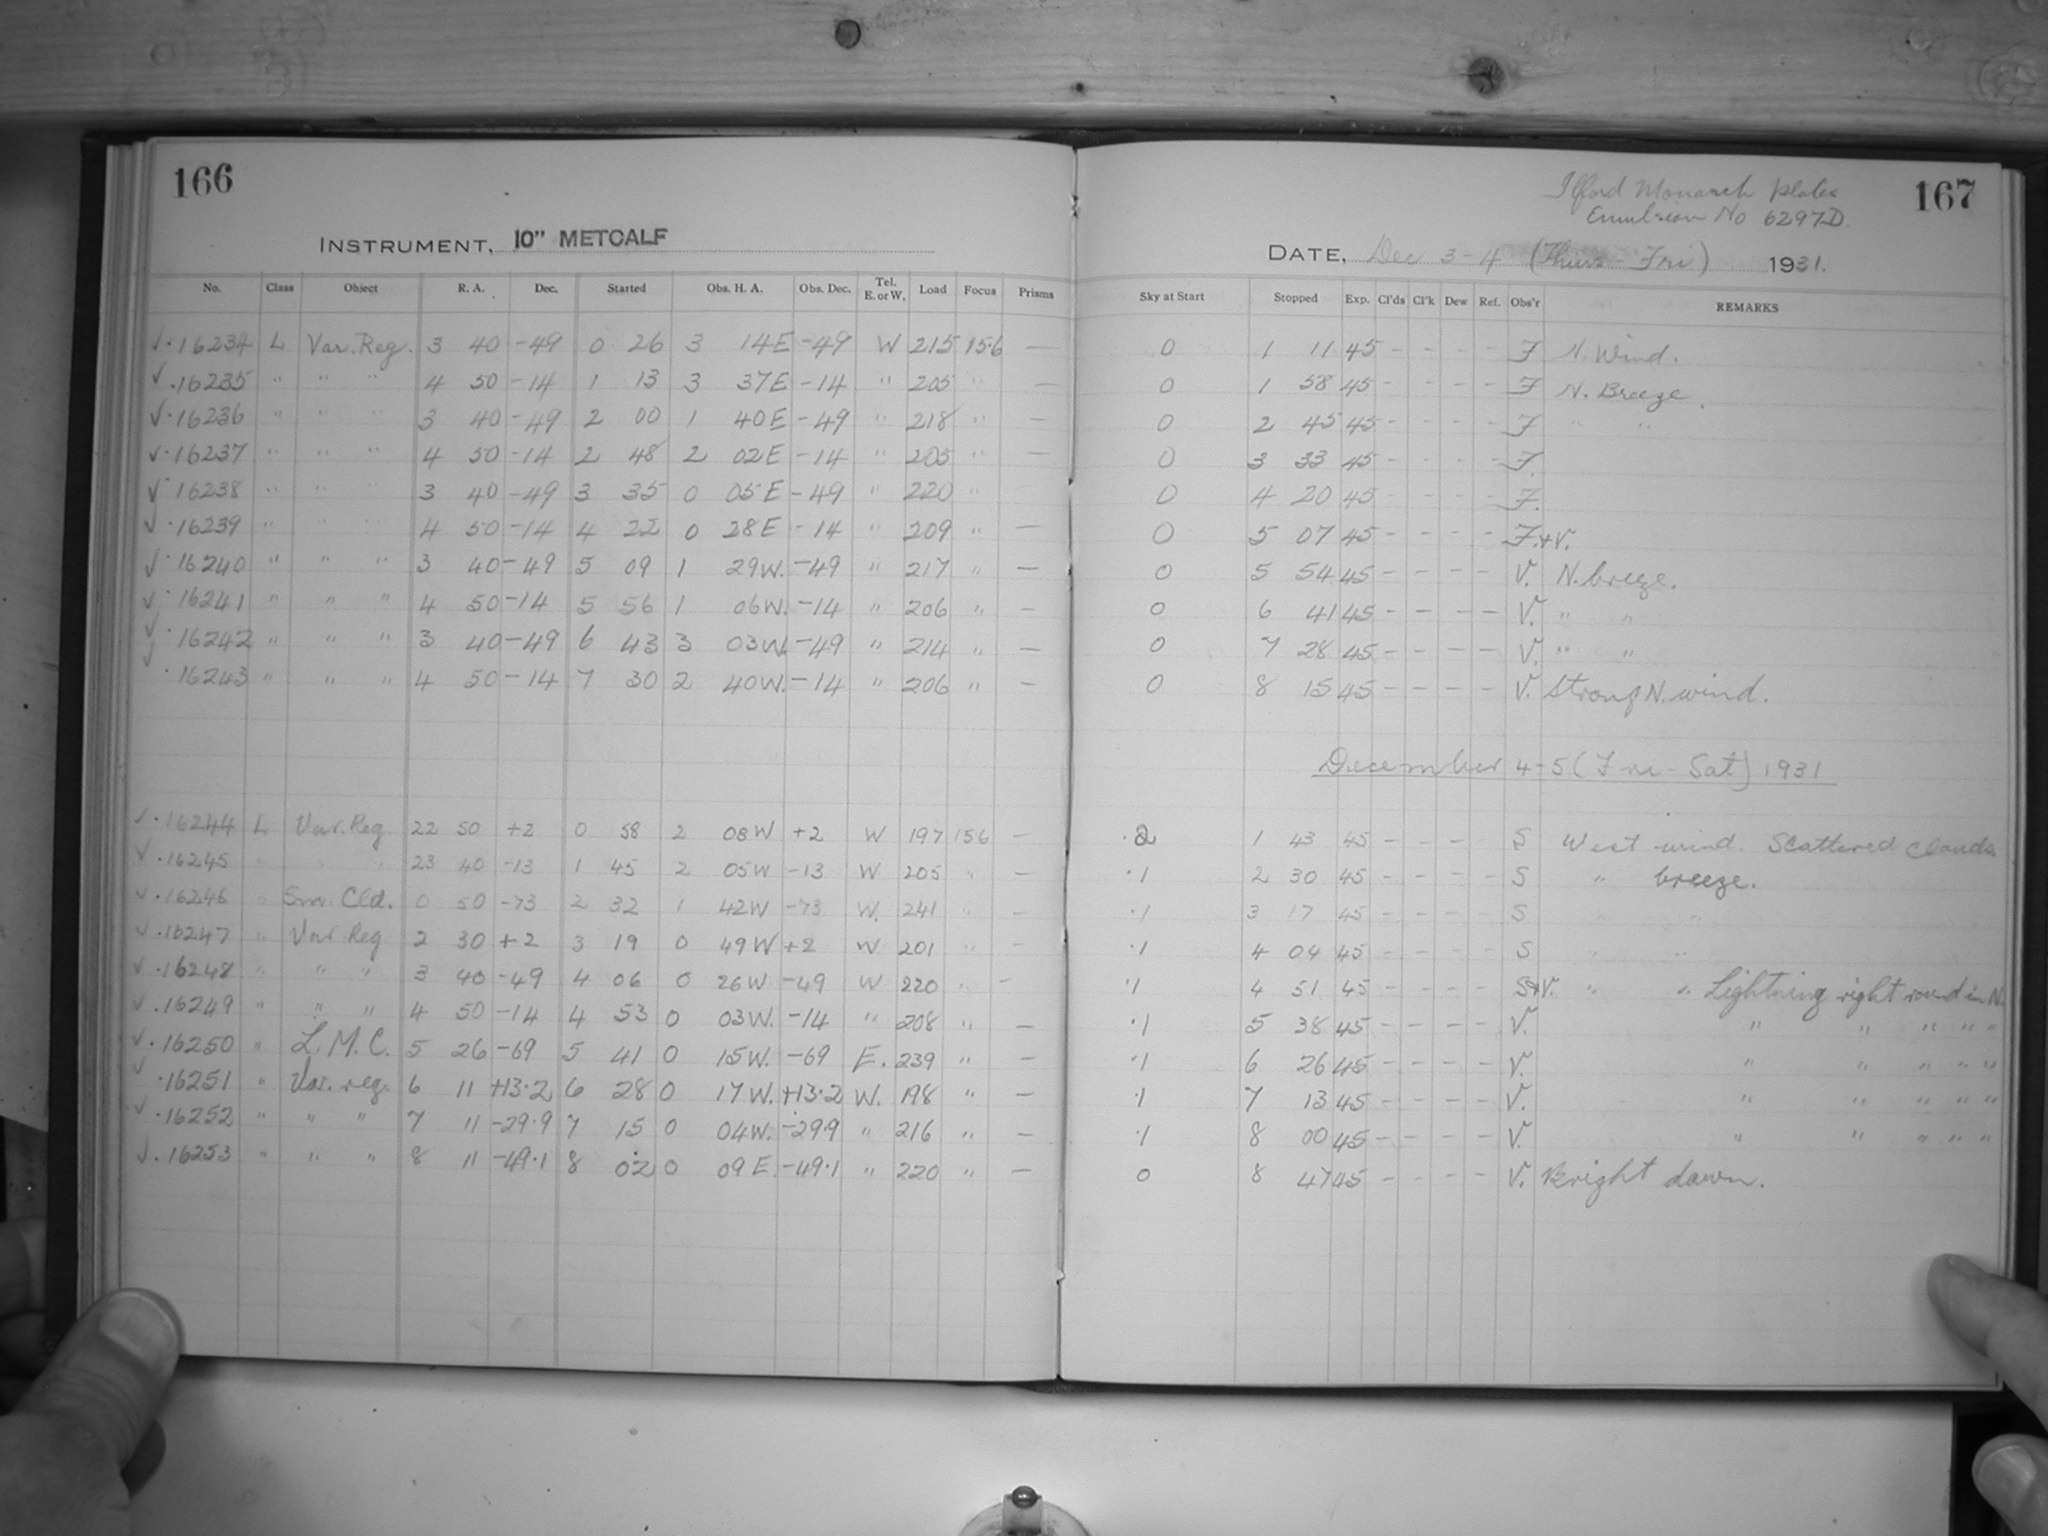 166
INSTRUMENT, 10" METCALF
No. Class Object R. A. Dec. Started Obs. H. A. Obs. Dec. Tel. E. or W. Load Focus Prisms
√ · 16234 L Var. Reg. 3 40 -49 0 26 3 14E -49 W 215 15.6 —
√ · 16235 " " " 4 50 -14 1 13 3 37E -14 " 205 " —
√ · 16236 " " " 3 40 -49 2 00 1 40E -49 " 218 " —
√ · 16237 " " " 4 50 -14 2 48 2 02E -14 " 205 " —
√ · 16238 " " " 3 40 -49 3 35 0 05E -49 " 220 " —
√ · 16239 " " " 4 50 -14 4 22 0 28E -14 " 209 " —
√ · 16240 " " " 3 40 -49 5 09 1 29W. -49 " 217 " —
√ · 16241 " " " 4 50 -14 5 56 1 06W. -14 " 206 " —
√ · 16242 " " " 3 40 -49 6 43 3 03W. -49 " 214 " —
√ · 16243 " " " 4 50 -14 7 30 2 40W. -14 " 206 " —
√ · 16244 L Var. Reg. 22 50 +2 0 58 2 08W +2 W 197 156 —
√ · 16245 " " " 23 40 -13 1 45 2 05W -13 W 205 " —
√ · 16246 " Sm. Cld. 0 50 -73 2 32 1 42W -73 W. 241 " —
√ · 16247 " Var Reg 2 30 +2 3 19 0 49W +2 W 201 " —
√ · 16248 " " " 3 40 -49 4 06 0 26W -49 W 220 " —
√ · 16249 " " " 4 50 -14 4 53 0 03W. -14 " 208 " —
√ · 16250 " L. M. C. 5 26 -69 5 41 0 15W. -69 E. 239 " —
√ · 16251 " Var. reg. 6 11 +13.2 6 28 0 17W. +13.2 W. 198 " —
√ · 16252 " " " 7 11 -29.9 7 15 0 04W. -29.9 " 216 " —
√ · 16253 " " " 8 11 -49.1 8 02 0 09E. -49.1 " 220 " —
167
Ilford Monarch plates
Emulsion No 6297D.
DATE, Dec 3-4 (Thurs - Fri) 1931.
Sky at Start Stopped Exp. Cl'ds Cl'k Dew Ref. Obs'r REMARKS
0 1 11 45 - - - - F N. Wind.
0 1 58 45 - - - - F N. Breeze.
0 2 45 45 - - - - F " "
0 3 33 45 - - - - F.
0 4 20 45 - - - - F.
0 5 07 45 - - - - F.+V.
0 5 54 45 - - - - V. N. breeze.
0 6 41 45 - - - - V. " "
0 7 28 45 - - - - V. " "
0 8 15 45 - - - - V. Strong N. wind.
December 4-5 (Fri - Sat) 1931
.2 1 43 45 - - - - S West wind. Scattered clouds
.1 2 30 45 - - - - S " breeze.
.1 3 17 45 - - - - S " "
.1 4 04 45 - - - - S " "
.1 4 51 45 - - - - S+V. " " Lightning right round in N.
.1 5 38 45 - - - - V. " " " " "
.1 6 26 45 - - - - V. " " " " "
.1 7 13 45 - - - - V. " " " " "
.1 8 00 45 - - - - V. " " " " "
0 8 47 45 - - - - V. Bright dawn.